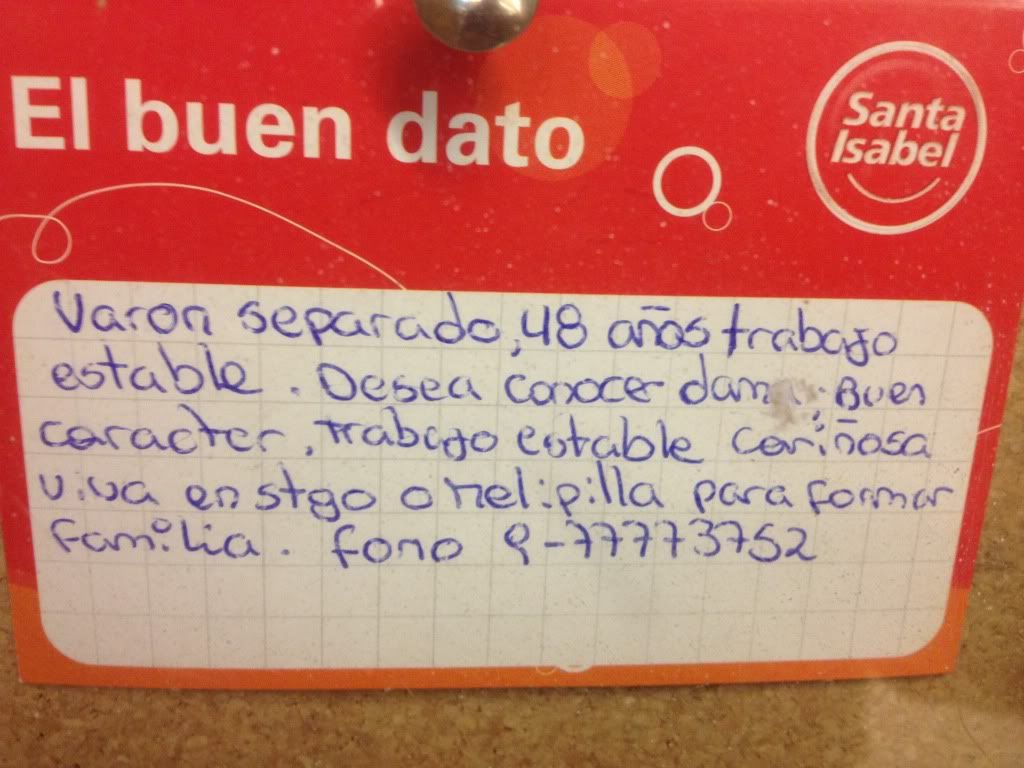 El buen dato
Santa
Isabel
Varon separado, 48 años trabajo
estable. Desea conocer dama. Buen
caracter, trabajo estable cariñosa
viva en stgo o melipilla para formar
familia. fono 9-77773752